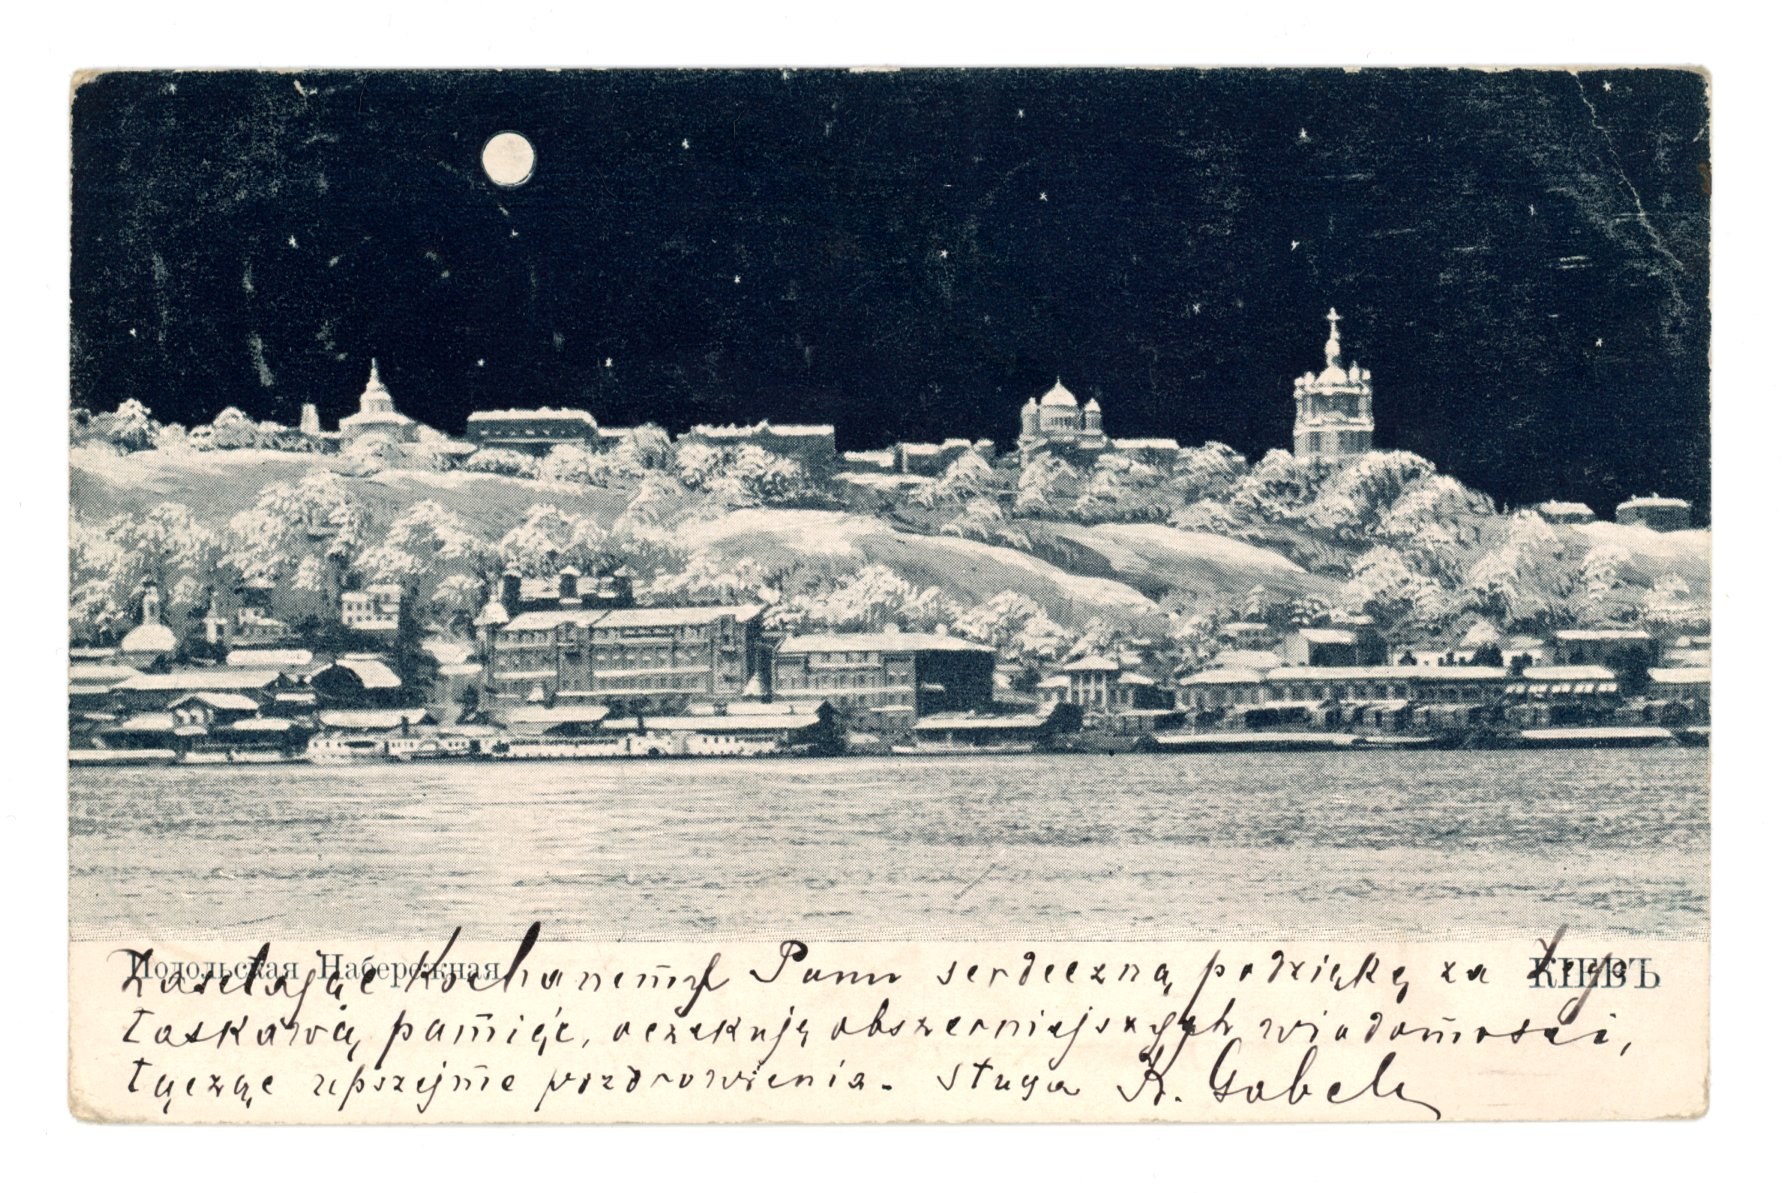 Подольская Набережная. КІЕВЪ
Zasełając Kochanemu Panu serdeczną podziękę za Jego
łaskawą pamięć, oczekuję obszerniejszych wiadomości,
łącząc uprzejme pozdrowienia. Sługa K. Gobel